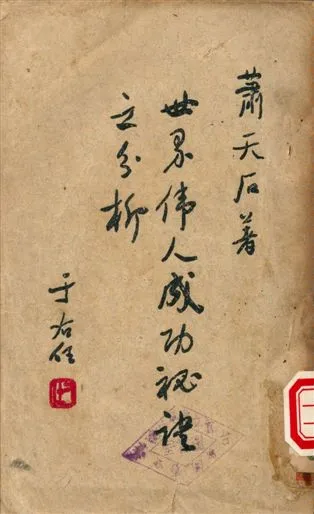 蕭天石著
世界偉人成功祕訣
之分析
于右任